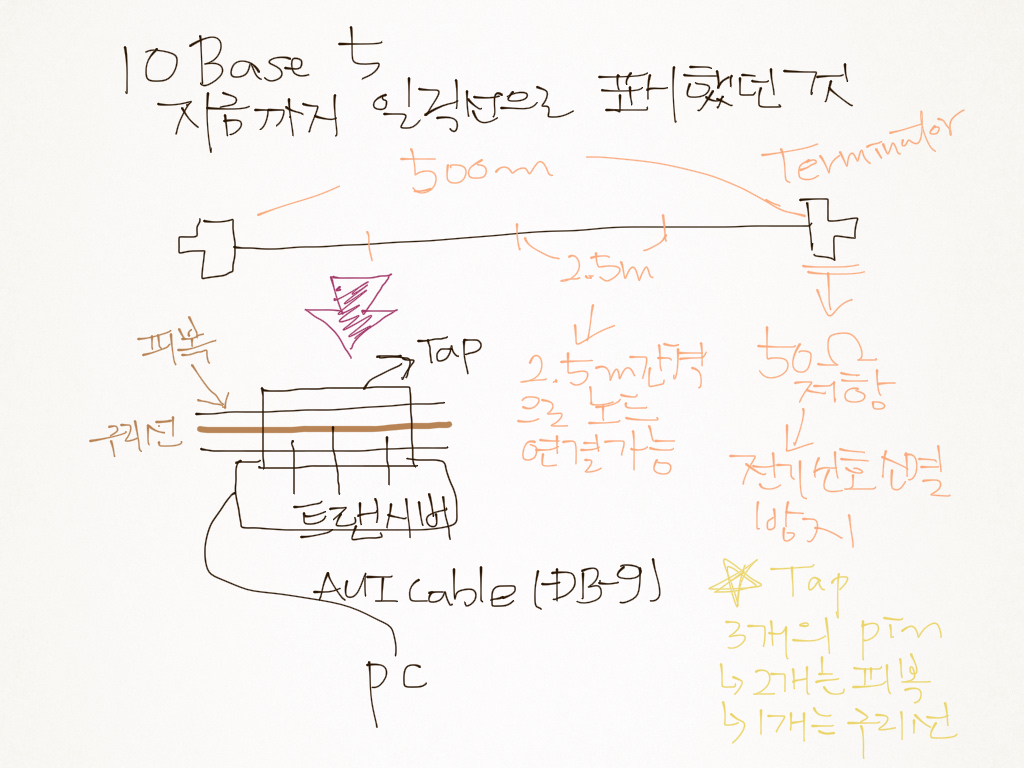 10 Base 5
지금까지 일직선으로 표시했던 것
500m
Terminator
2.5m
피복
Tap
구리선
2.5m 간격
으로 노드
연결가능
50Ω
저항
전기신호 소멸
방지
트랜시버
AUI cable (DB-9)
PC
☆ Tap
3개의 pin
↳ 2개는 피복
↳ 1개는 구리선